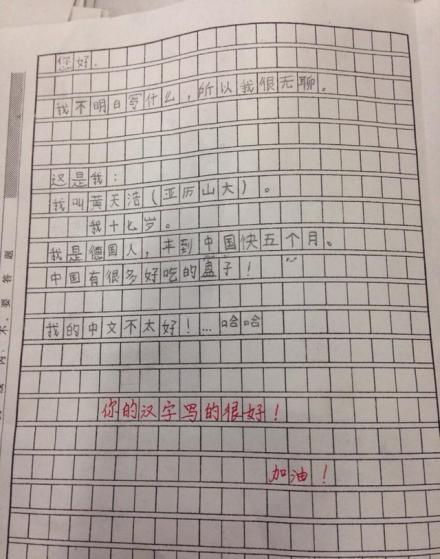 你好.
我不明白写什么，所以我很无聊。
这是我：
我叫黄天浩（亚历山大）。
我十七岁。
我是德国人，来到中国快五个月。
中国有很多好吃的盒子！
我的中文不太好！...哈哈
你的汉字写的很好！
加油！
题
答
要
不
内